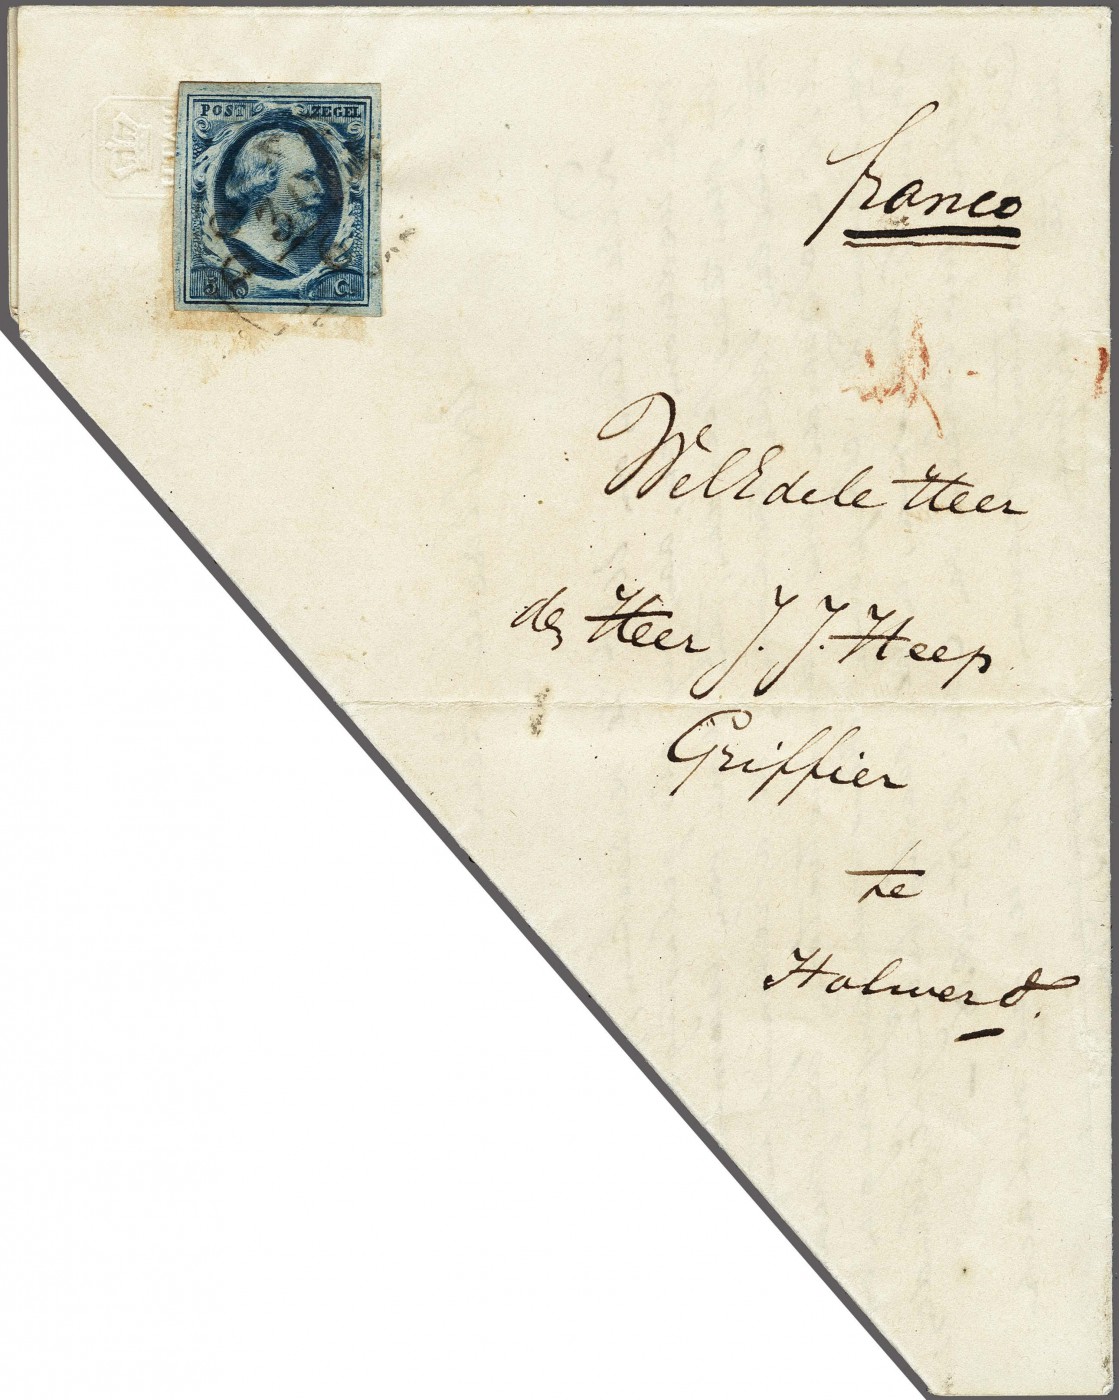 POSTZEGEL
5 C.
franco
WelEdele Heer
de Heer J. J. Heep
Griffier
te
Holwerd.